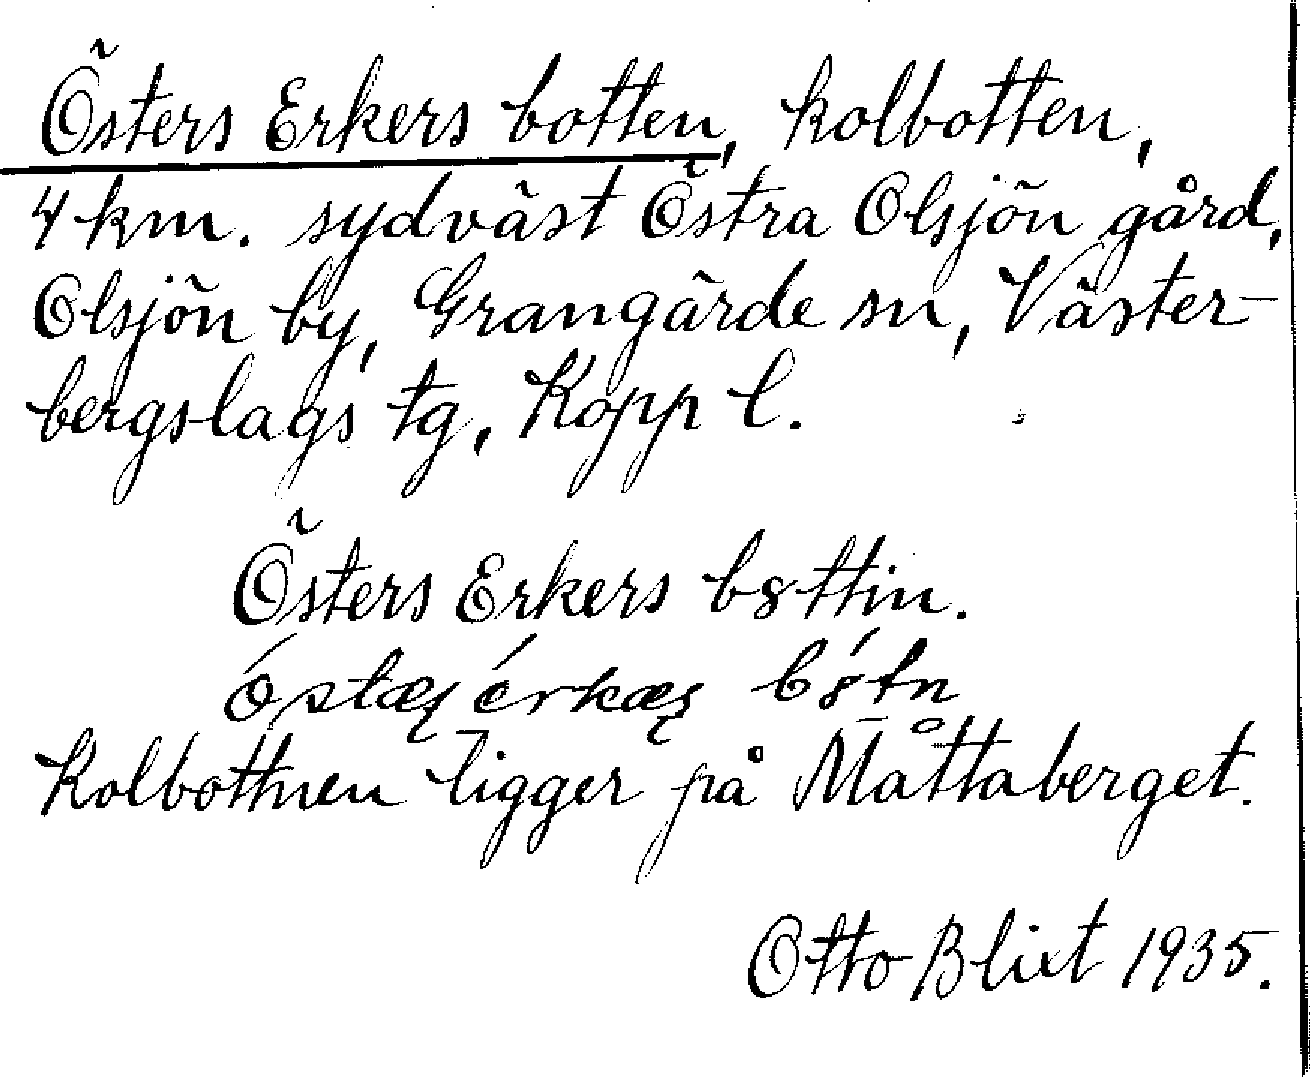 Östers Erkers botten, kolbotten,
4 km. sydväst Östra Olsjön gård,
Olsjön by, Grangärde sn, Väster-
bergslags tg, Kopp l.
Östers Erkers b8ttin.
Kolbottnen ligger på Måttaberget.
Otto Blixt 1935.